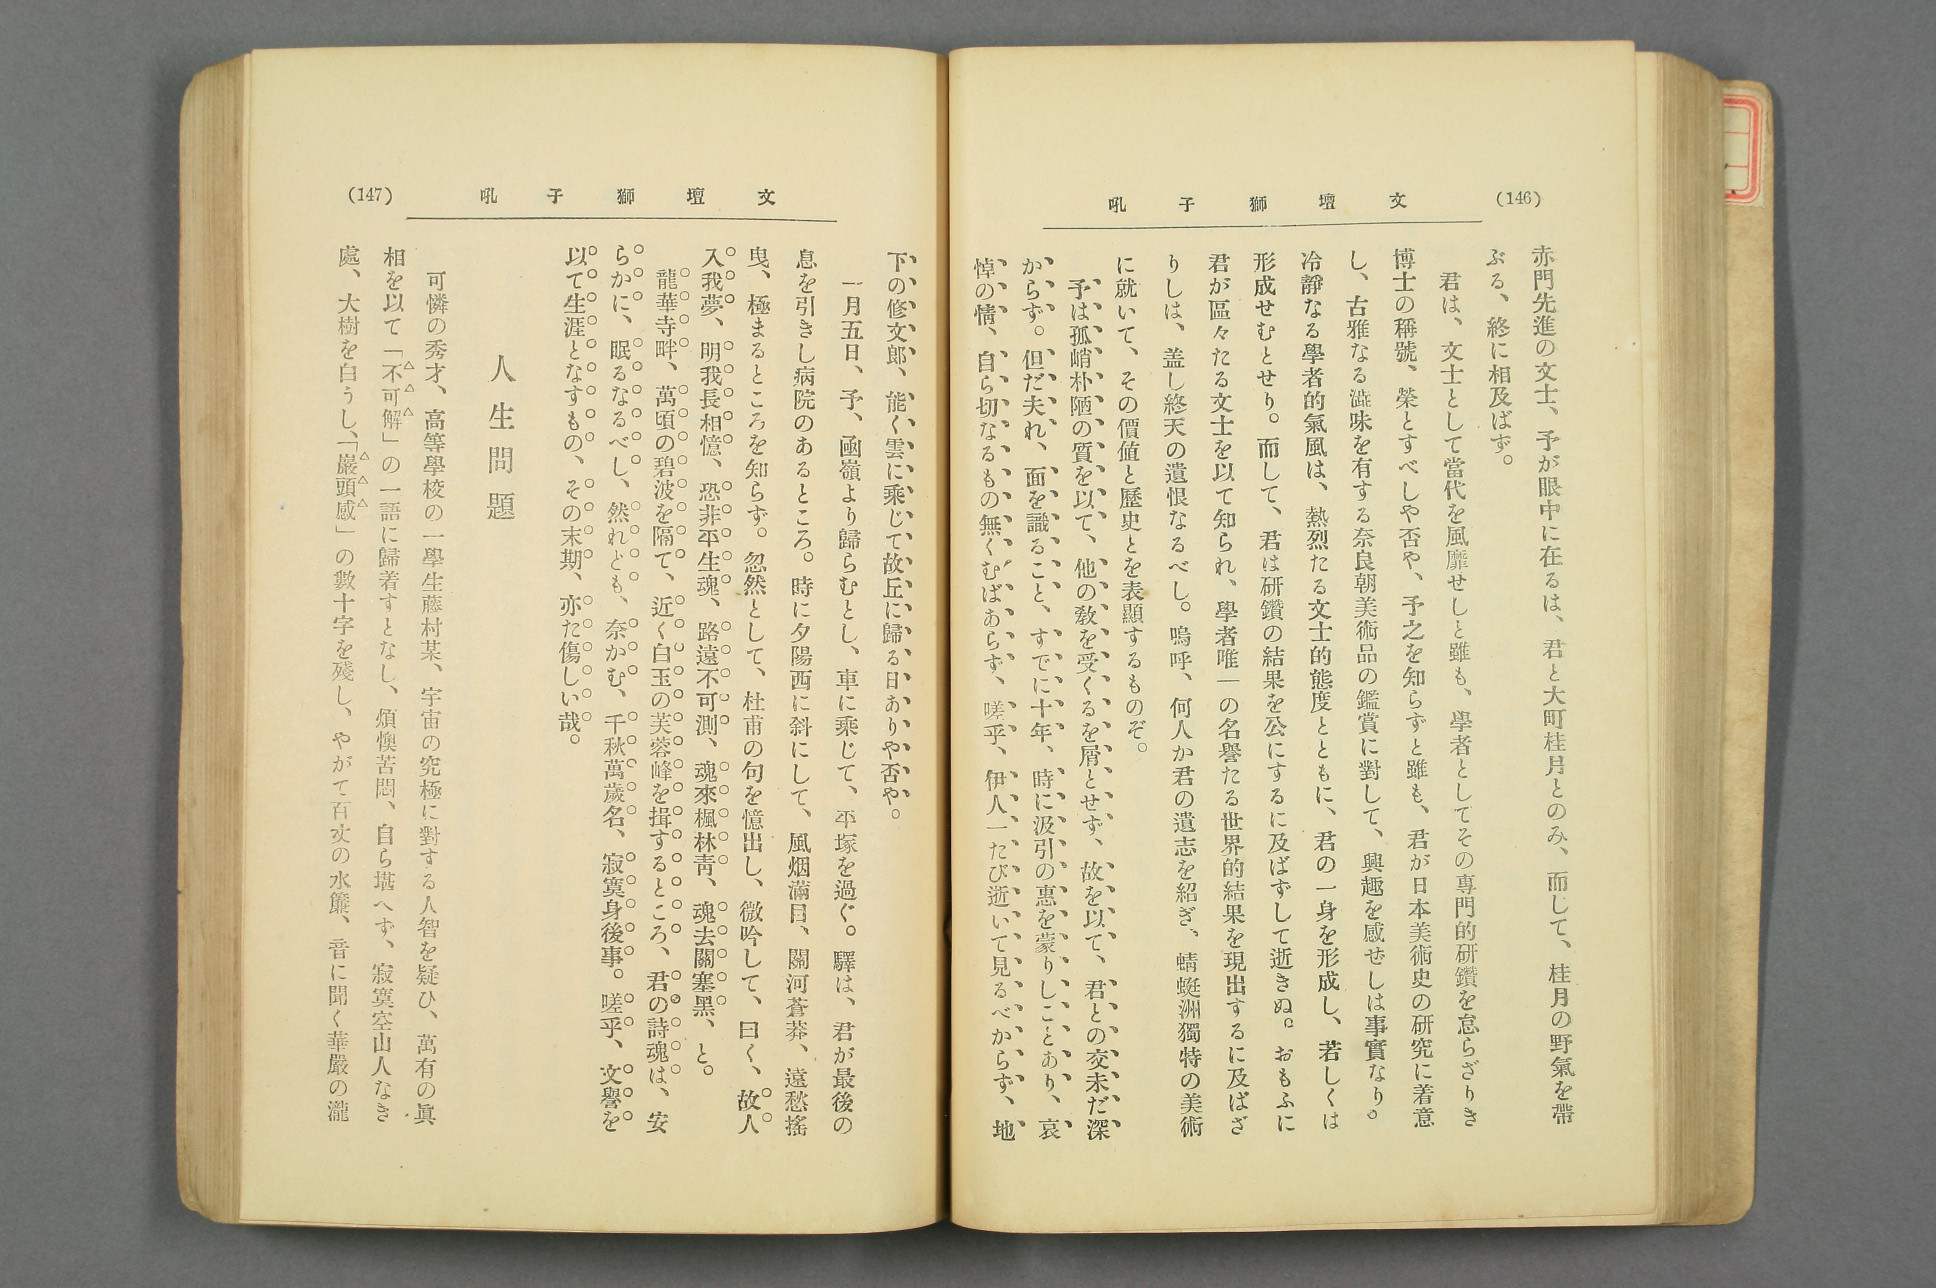 (146)
文壇獅子吼
赤門先進の文士、予が眼中に在るは、君と大町桂月とのみ、而して、桂月の野氣を帶
ぶる、終に相及ばず。
君は、文士として當代を風靡せしと雖も、學者としてその專門的研鑽を怠らざりき
博士の稱號、榮とすべしや否や、予之を知らずと雖も、君が日本美術史の研究に着意
し、古雅なる澁味を有する奈良朝美術品の鑑賞に對して、興趣を感ぜしは事實なり。
冷靜なる學者的氣風は、熱烈たる文士的態度とともに、君の一身を形成し、若しくは
形成せむとせり。而して、君は研鑽の結果を公にするに及ばずして逝きぬ。おもふに
君が區々たる文士を以て知られ、學者唯一の名譽たる世界的結果を現出するに及ばざ
りしは、盖し終天の遺恨なるべし。嗚呼、何人か君の遺志を紹ぎ、蜻蜓洲獨特の美術
に就いて、その價値と歷史とを表顯するものぞ。
予は孤峭朴陋の質を以て、他の敎を受くるを屑とせず、故を以て、君との交未だ深
からず。但だ夫れ、面を識ること、すでに十年、時に汲引の惠を蒙りしことあり、哀
悼の情、自ら切なるもの無くむばあらず、嗟乎、伊人一たび逝いて見るべからず、地
(147)
文壇獅子吼
下の修文郎、能く雲に乘じて故丘に歸る日ありや否や。
一月五日、予、凾嶺より歸らむとし、車に乘じて、平塚を過ぐ。驛は、君が最後の
息を引きし病院のあるところ。時に夕陽西に斜にして、風烟滿目、關河蒼莽、遠愁搖
曳、極まるところを知らず。忽然として、杜甫の句を憶出し、微吟して、曰く、故人
入我夢、明我長相憶、恐非平生魂、路遠不可測、魂來楓林靑、魂去關塞黑、と。
龍華寺畔、萬頃の碧波を隔て、近く白玉の芙蓉峰を揖するところ、君の詩魂は、安
らかに、眠るなるべし、然れども、奈かむ、千秋萬歲名、寂寞身後事。嗟乎、文譽を
以て生涯となすもの、その末期、亦た傷しい哉。
人生問題
可憐の秀才、高等學校の一學生藤村某、宇宙の究極に對する人智を疑ひ、萬有の眞
相を以て「不可解」の一語に歸着すとなし、煩懊苦悶、自ら堪へず、寂寞空山人なき
處、大樹を白うし、「巖頭感」の數十字を殘し、やがて百丈の水簾、音に聞く華嚴の瀧